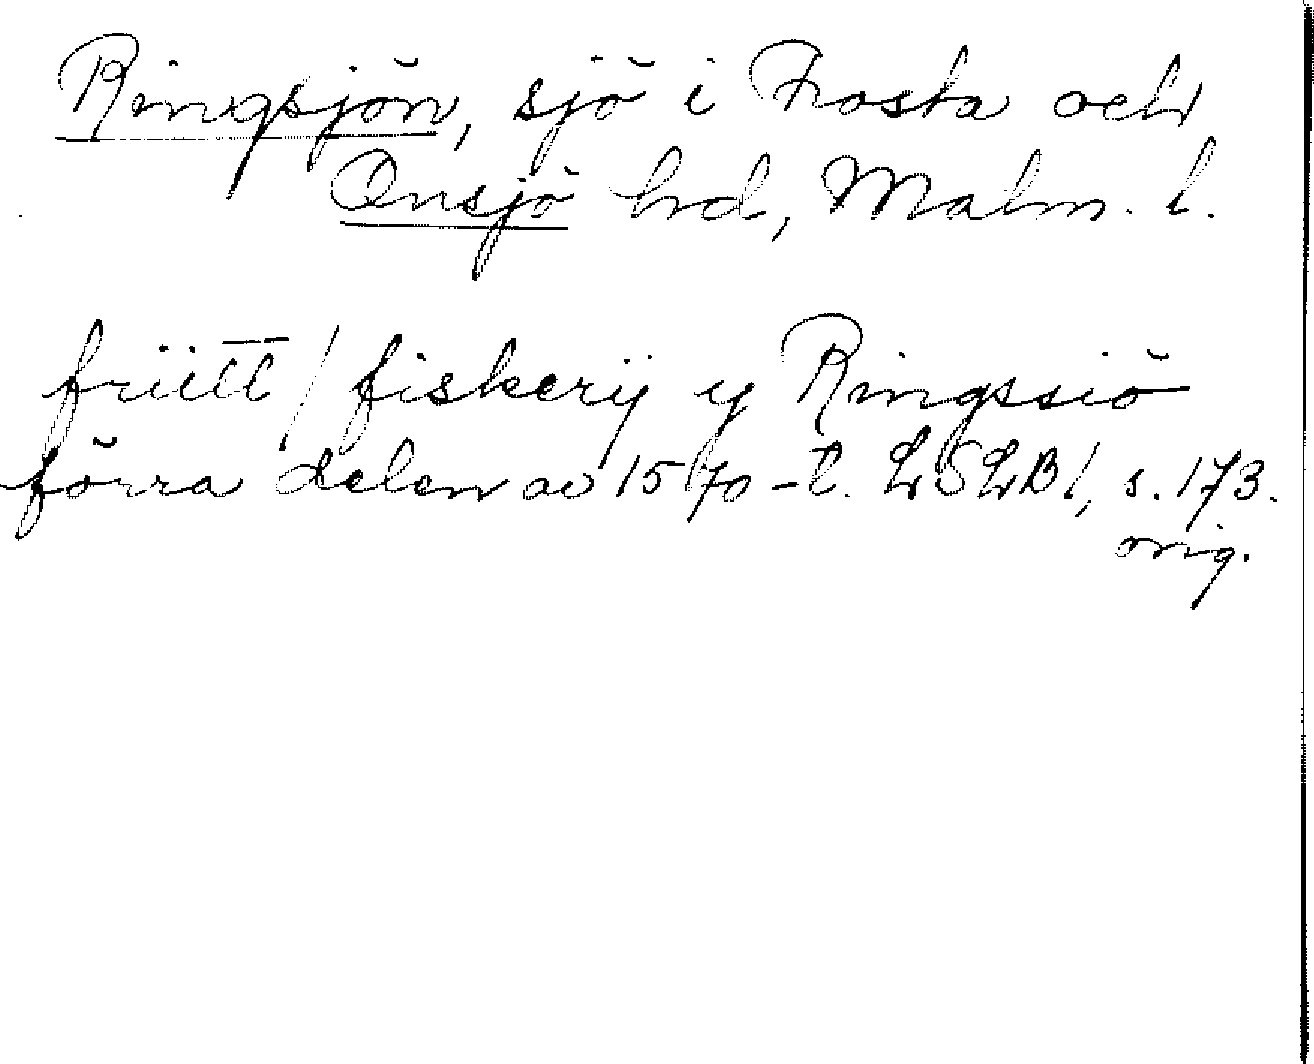 Ringsjön, sjö i Frosta och
Onsjö hrd, Malm. l.
friitt / fiskerij ij Ringssiö
förra delen av 1570-t. LSLB 1, s. 173.
orig.